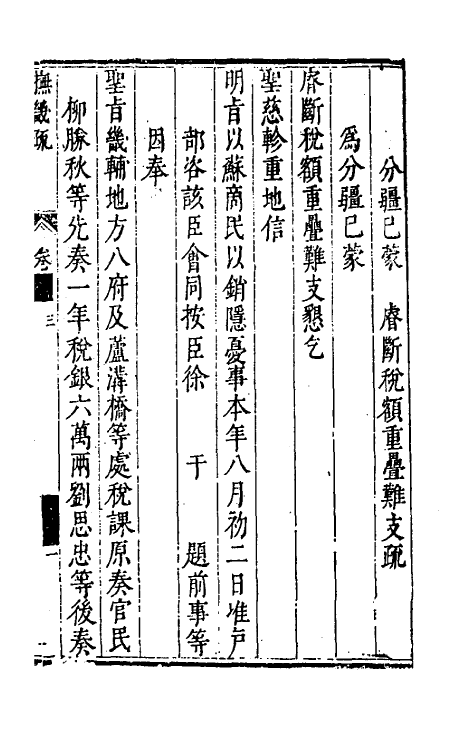 分疆已蒙　睿斷稅額重疊難支疏
爲分疆已蒙
睿斷稅額重疊難支懇乞
聖慈軫重地信
明旨以蘇商民以銷隱憂事本年八月初二日准戶
部咨該臣會同按臣徐　于　題前事等
因奉
聖旨畿輔地方八府及蘆溝橋等處稅課原奏官民
柳勝秋等先奏一年稅銀六萬兩劉思忠等後奏
撫畿疏　卷　三　一